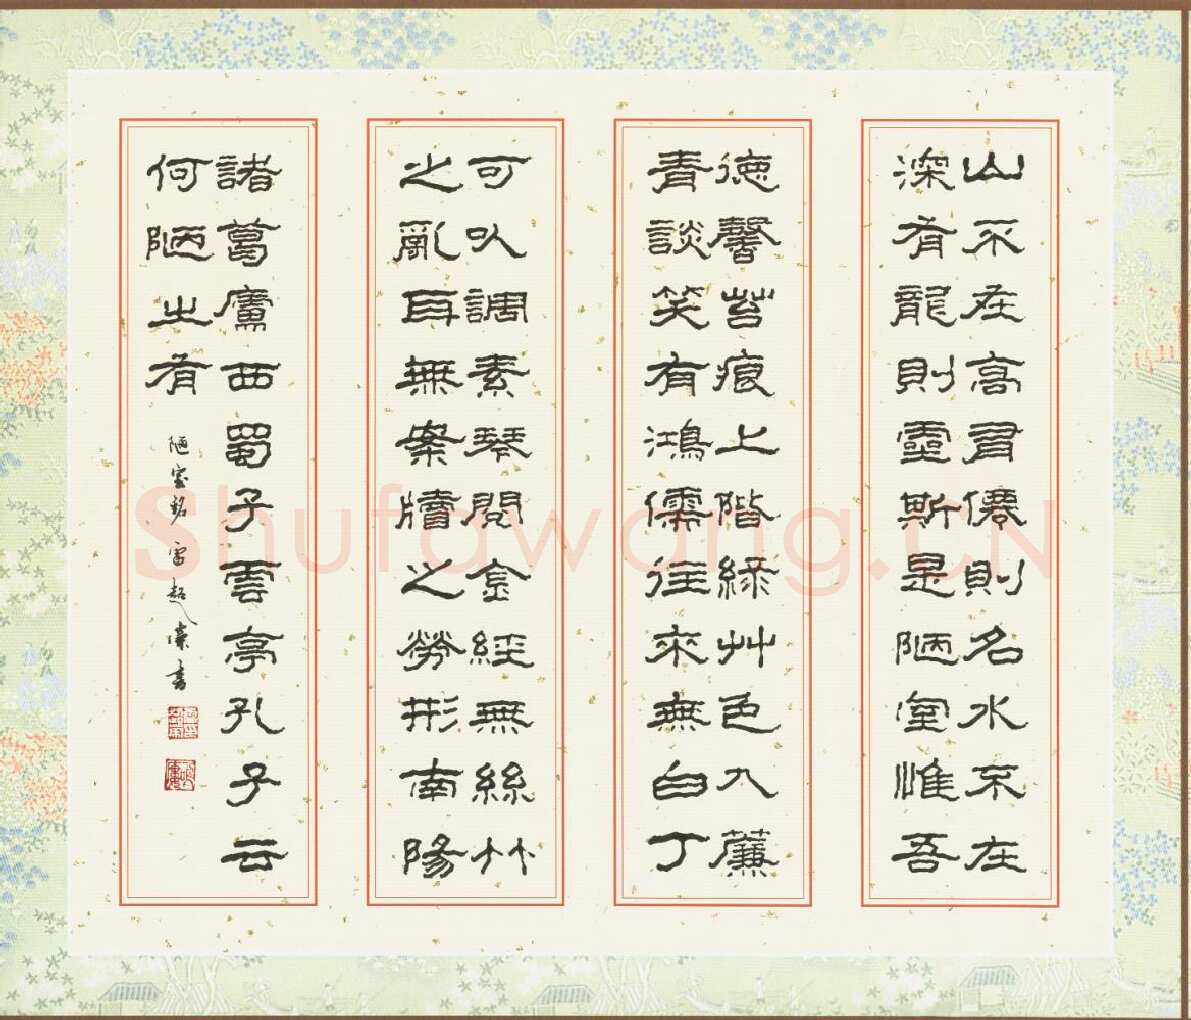 山不在高有僊則名水不在
深有龍則靈斯是陋室惟吾
德馨苔痕上階綠艸色入簾
青談笑有鴻儒往來無白丁
可以調素琴閱金經無絲竹
之亂耳無案牘之勞形南陽
諸葛廬西蜀子雲亭孔子云
何陋之有
陋室銘 雷超榮書
Shufawang.CN